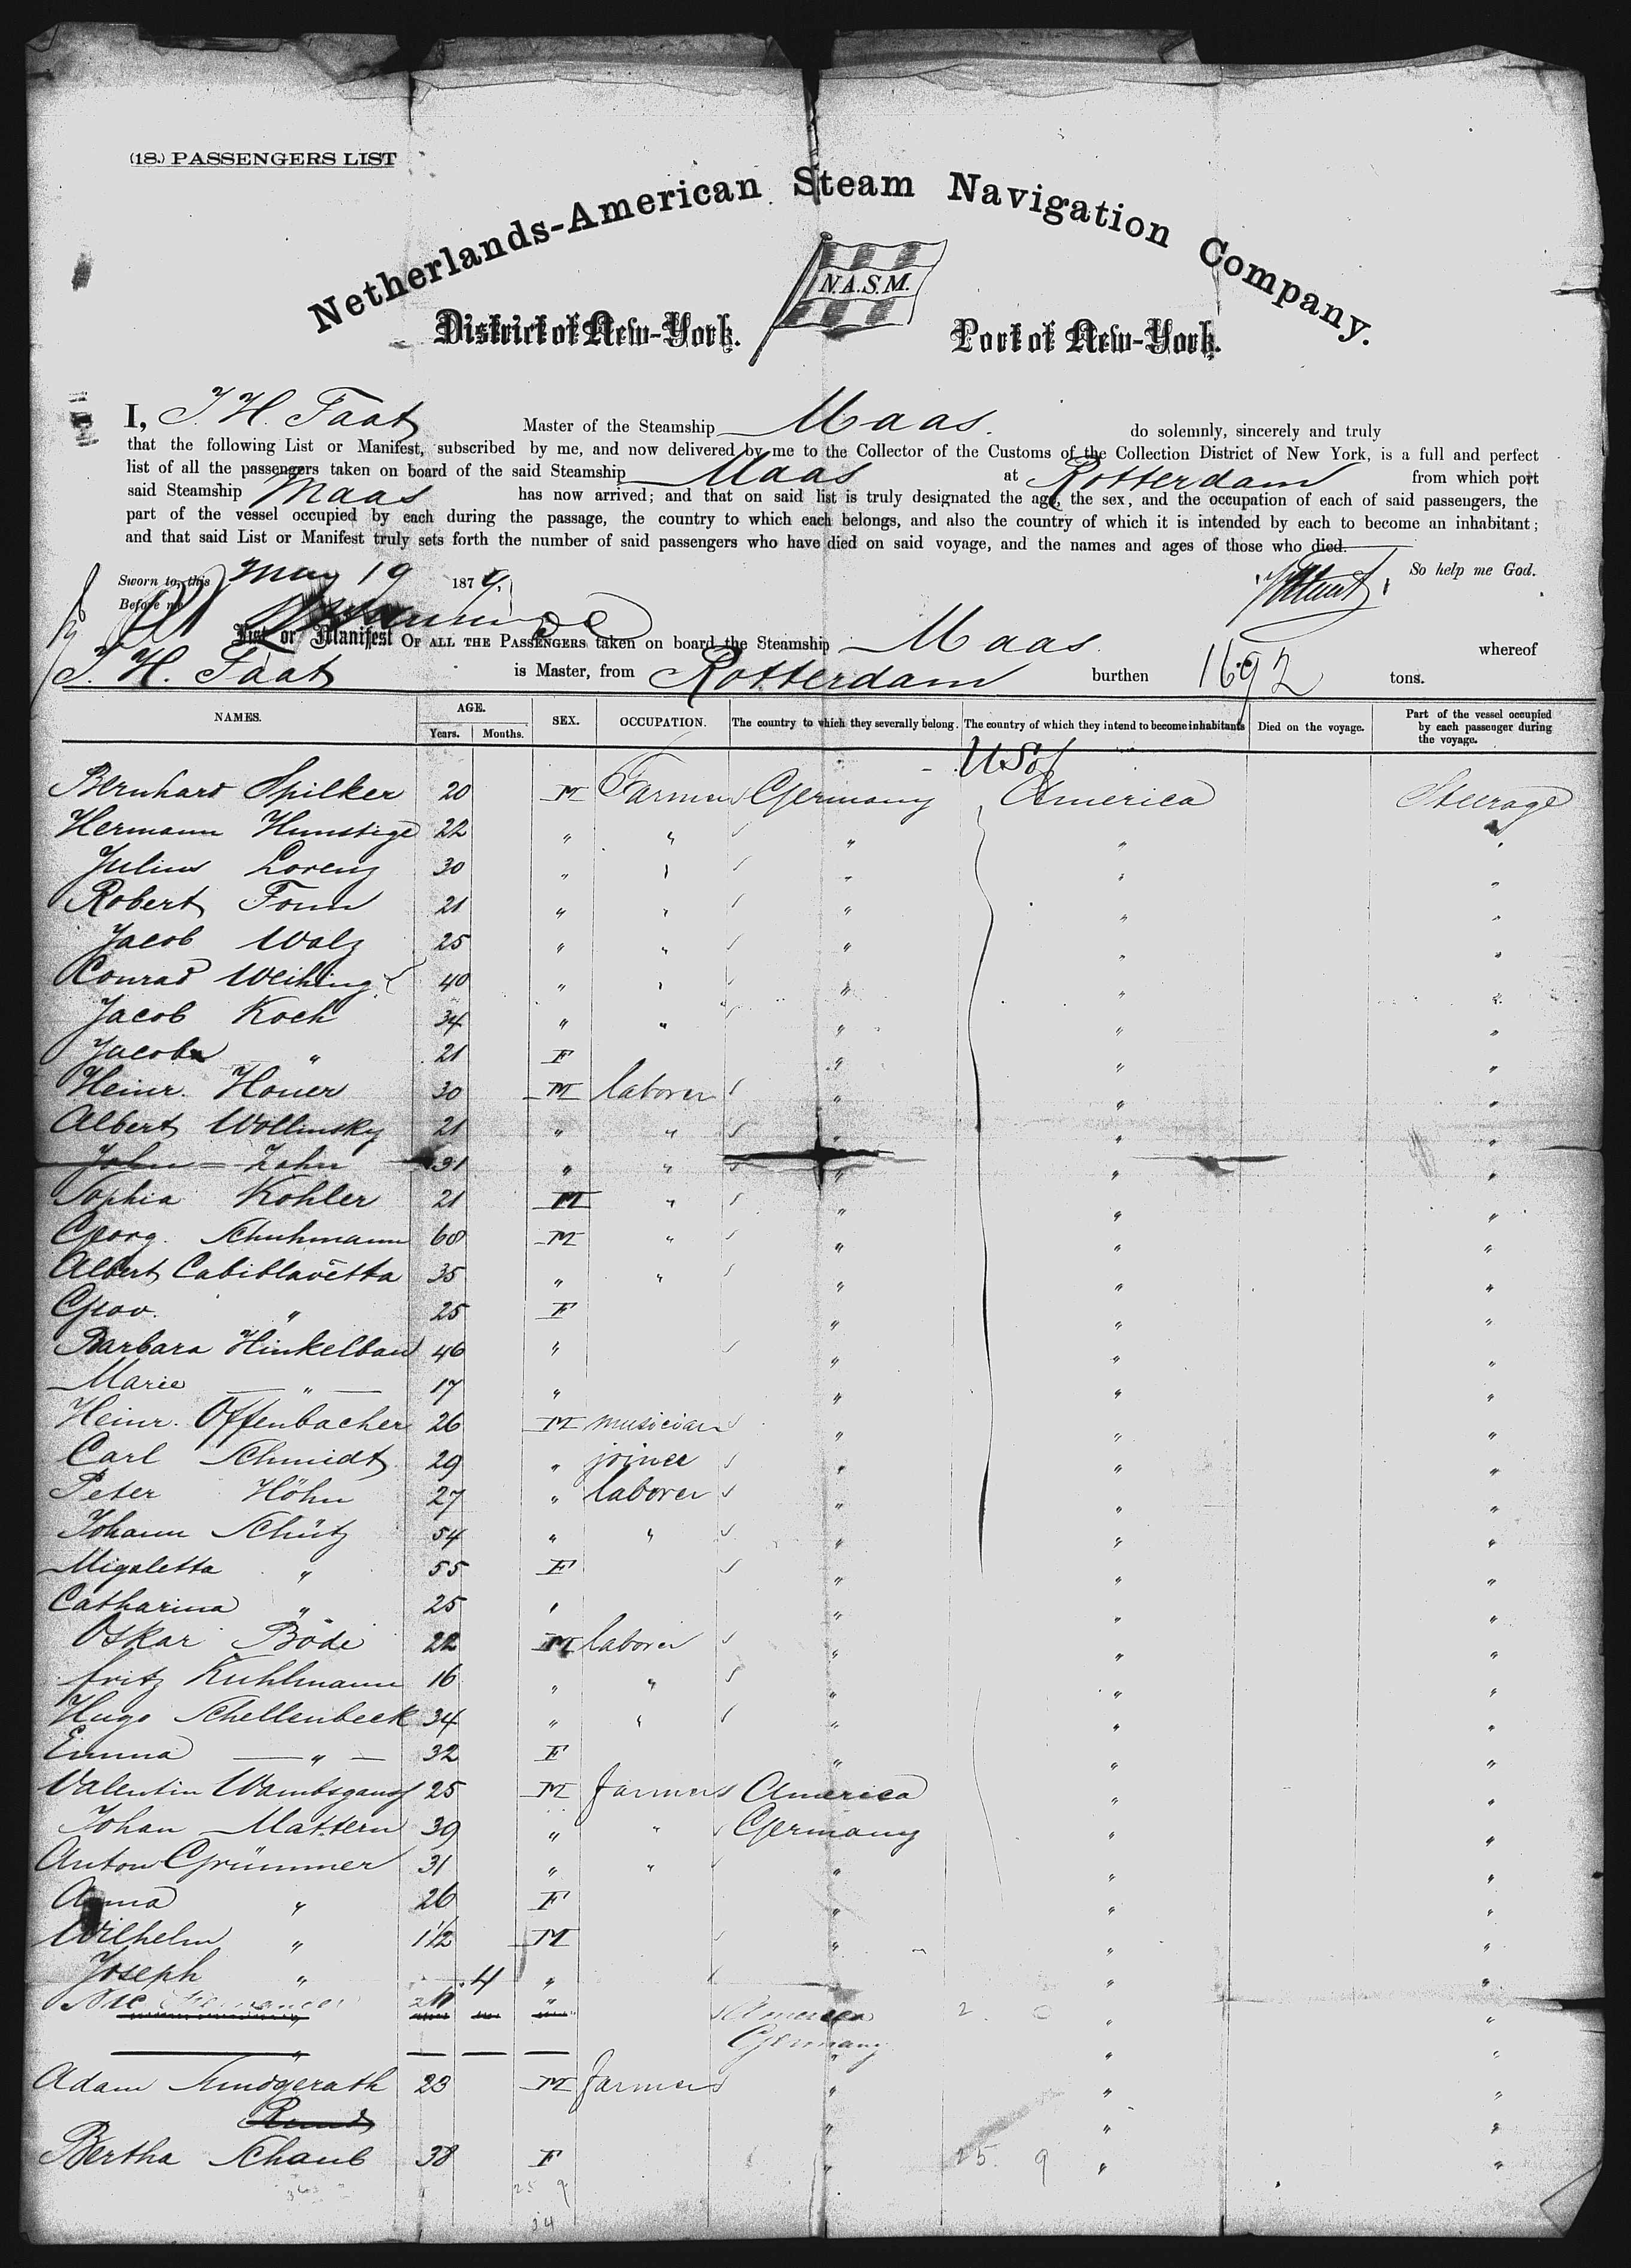 (18.) PASSENGERS LIST
Netherlands-American Steam Navigation Company.
N.A.S.M.
District of New-York. Port of New-York.
I, J. H. Taat Master of the Steamship Maas. do solemnly, sincerely and truly
that the following List or Manifest, subscribed by me, and now delivered by me to the Collector of the Customs of the Collection District of New York, is a full and perfect
list of all the passengers taken on board of the said Steamship Maas at Rotterdam from which port
said Steamship Maas has now arrived; and that on said list is truly designated the age, the sex, and the occupation of each of said passengers, the
part of the vessel occupied by each during the passage, the country to which each belongs, and also the country of which it is intended by each to become an inhabitant;
and that said List or Manifest truly sets forth the number of said passengers who have died on said voyage, and the names and ages of those who died.
Sworn to, this May 19 1879. So help me God.
Before me
List or Manifest OF ALL THE PASSENGERS taken on board the Steamship Maas whereof
J. H. Taat is Master, from Rotterdam burthen 1692 tons.
NAMES. AGE. Years. Months. SEX. OCCUPATION. The country to which they severally belong. The country of which they intend to become inhabitants Died on the voyage. Part of the vessel occupied by each passenger during the voyage.
U S of
Bernhard Spilker 20 M Farmers Germany America Steerage
Hermann Hunstige 22 " " " " "
Julius Lorenz 30 " " " " "
Robert Fonn 21 " " " " "
Jacob Walz 25 " " " " "
Conrad Weihing 40 " " " " "
Jacob Koch 34 " " " " "
Jacoba " 21 F " " "
Heinr. Honer 30 M laborer " " "
Albert Wollinsky 21 " " " " "
John Zahn 31 " " " " "
Sophia Kohler 21 M " " " "
Georg. Schuhmann 60 M " " " "
Albert Cabiblavetta 35 " " " " "
Giov. " 25 F " " "
Barbara Hinkelbau 46 " " " "
Marie " 17 " " " "
Heinr. Offenbacher 26 M musician " " "
Carl Schmidt 29 " joiner " " "
Peter Höhn 27 " laborer " " "
Johann Schütz 54 " " " " "
Migaletta " 55 F " " "
Catharina " 25 " " " "
Oskar Böde 22 M laborer " " "
Fritz Kuhlmann 16 " " " " "
Hugo Schellenbeck 34 " " " " "
Emma " 32 F " " "
Valentin Wambsganss 25 M farmers America " "
Johan Mattern 39 " " Germany " "
Anton Grümmer 31 " " " " "
Anna " 26 F " " "
Wilhelm " 1 1/2 M " " "
Joseph " 4 " " "
" America 2 0 " "
" Germany " "
Adam Sundgerath 23 M farmers " " "
" " "
Bertha Schaub 38 F " 25. 9 " "
25 9
34